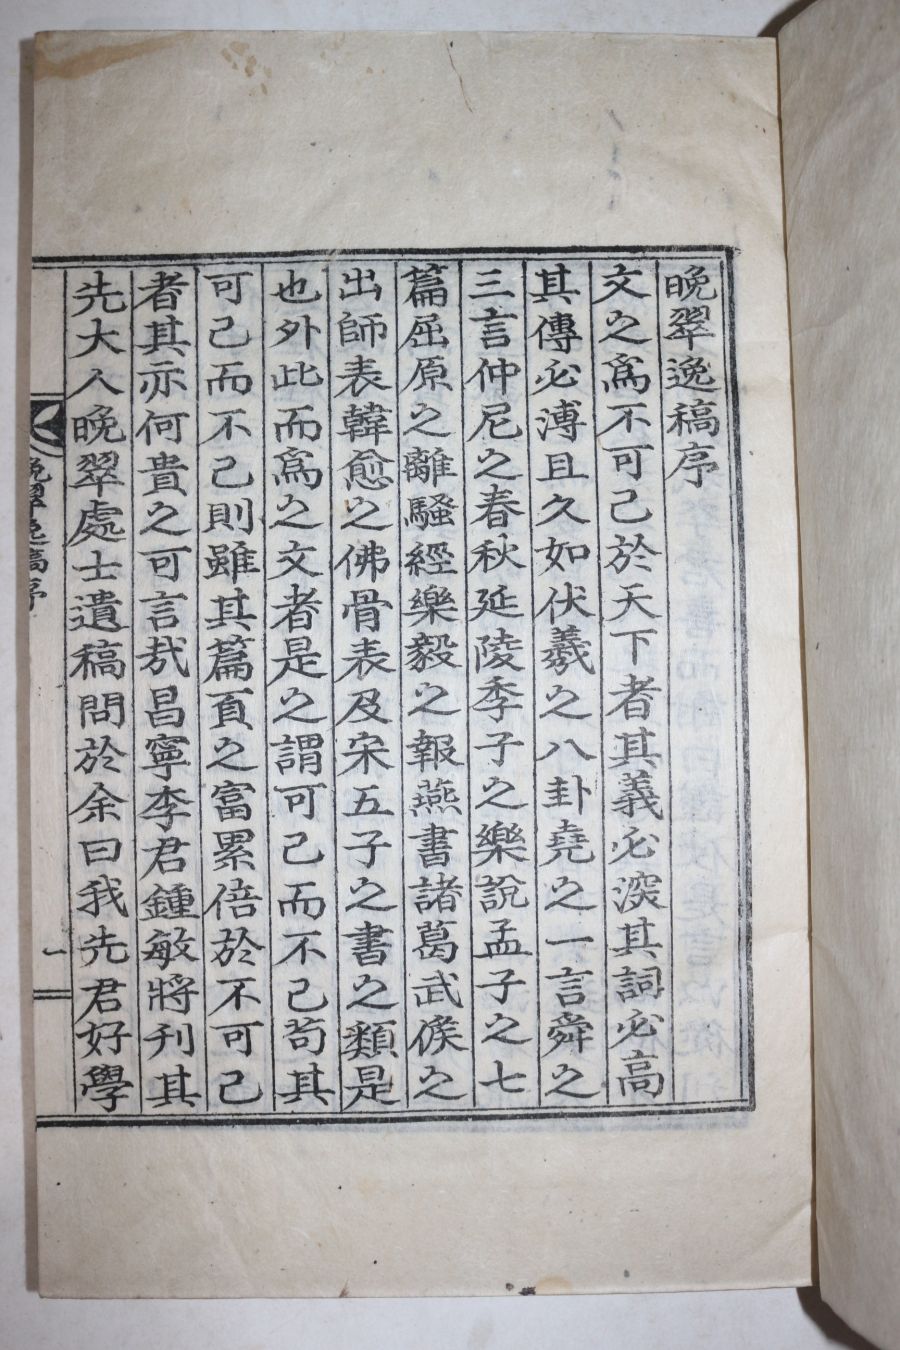 晩翠逸稿序
文之爲不可已於天下者其義必深其詞必高
其傳必溥且久如伏羲之八卦堯之一言舜之
三言仲尼之春秋延陵季子之樂說孟子之七
篇屈原之離騷經樂毅之報燕書諸葛武侯之
出師表韓愈之佛骨表及宋五子之書之類是
也外此而爲之文者是之謂可已而不已苟其
可已而不已則雖其篇頁之富累倍於不可已
者其亦何貴之可言哉昌寧李君鍾敏將刊其
先大人晩翠處士遺稿問於余曰我先君好學
晩翠逸稿序
一